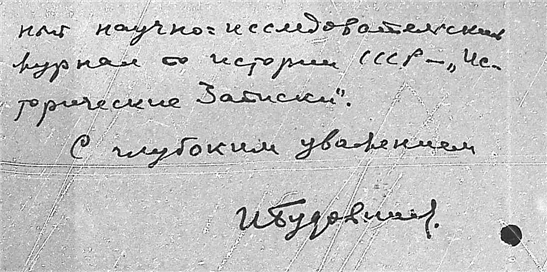 ный научно=исследовательский
журнал по истории СССР – „Ис-
торические Записки“.
С глубоким уважением
И Будовниц.